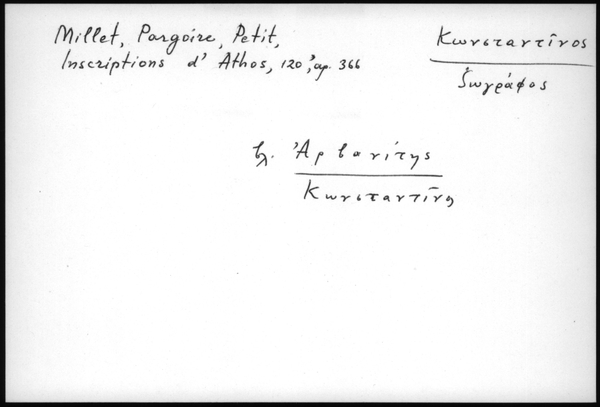 Millet, Pargoire, Petit,
Inscriptions d' Athos, 120, ἀρ. 366
Κωνσταντῖνος
ζωγράφος
βλ. Ἀρβανίτης
Κωνσταντῖνος